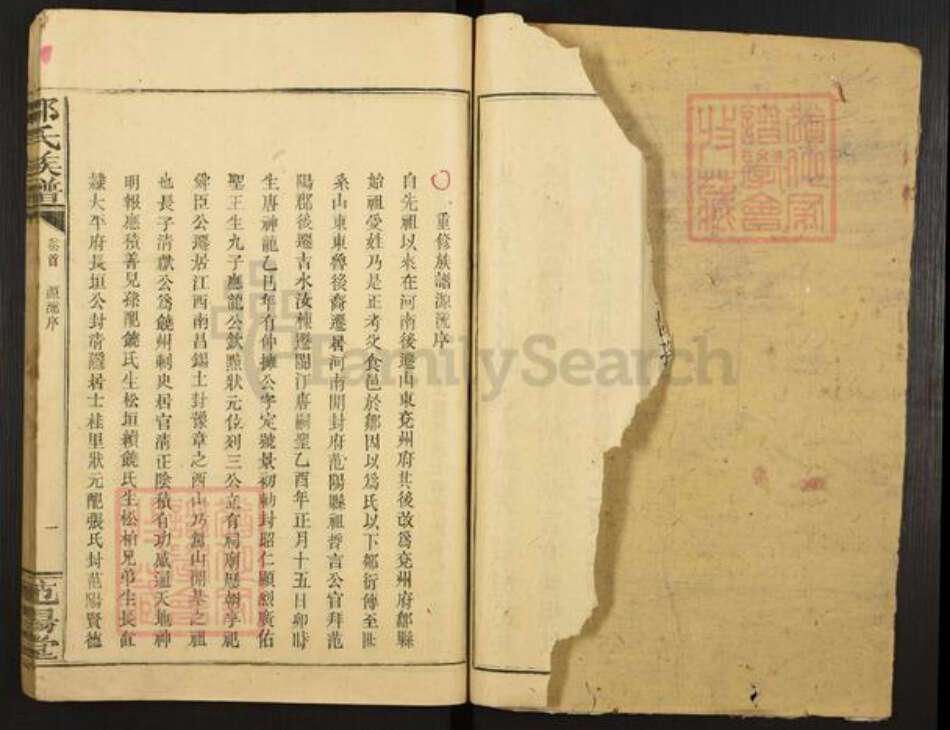 重修族譜源流序
自先祖以來在河南後遷山東兗州府其後改爲兗州府鄒縣
始祖受姓乃是正考父食邑於鄒因以爲氏以下鄒衍傳至
系山東東魯後裔遷居河南開封府范陽縣祖晉言公官拜范
陽郡後遷吉水汝棟遷閩江唐嗣聖乙酉年正月十五日卯時
生唐神龍乙巳年有仲擁公字定號景初勅封昭仁顯烈廣佑
聖王生九子應龍公欽點狀元位列三公立有祠廟歷朝享祀
佛臣公遷居江西南昌錫土封豫章之西山乃盤山開基之祖
也長子清獻公爲饒州刺史居官清正陰積有功感通天地神
明報應積善兒孫配饒氏生松垣續饒氏生松柏兄弟生長缸
隸大平府長垣公封清隱居士桂里狀元配張氏封范陽賢德
鄒氏族譜
卷首
源流序
一
范陽堂
FamilySearch